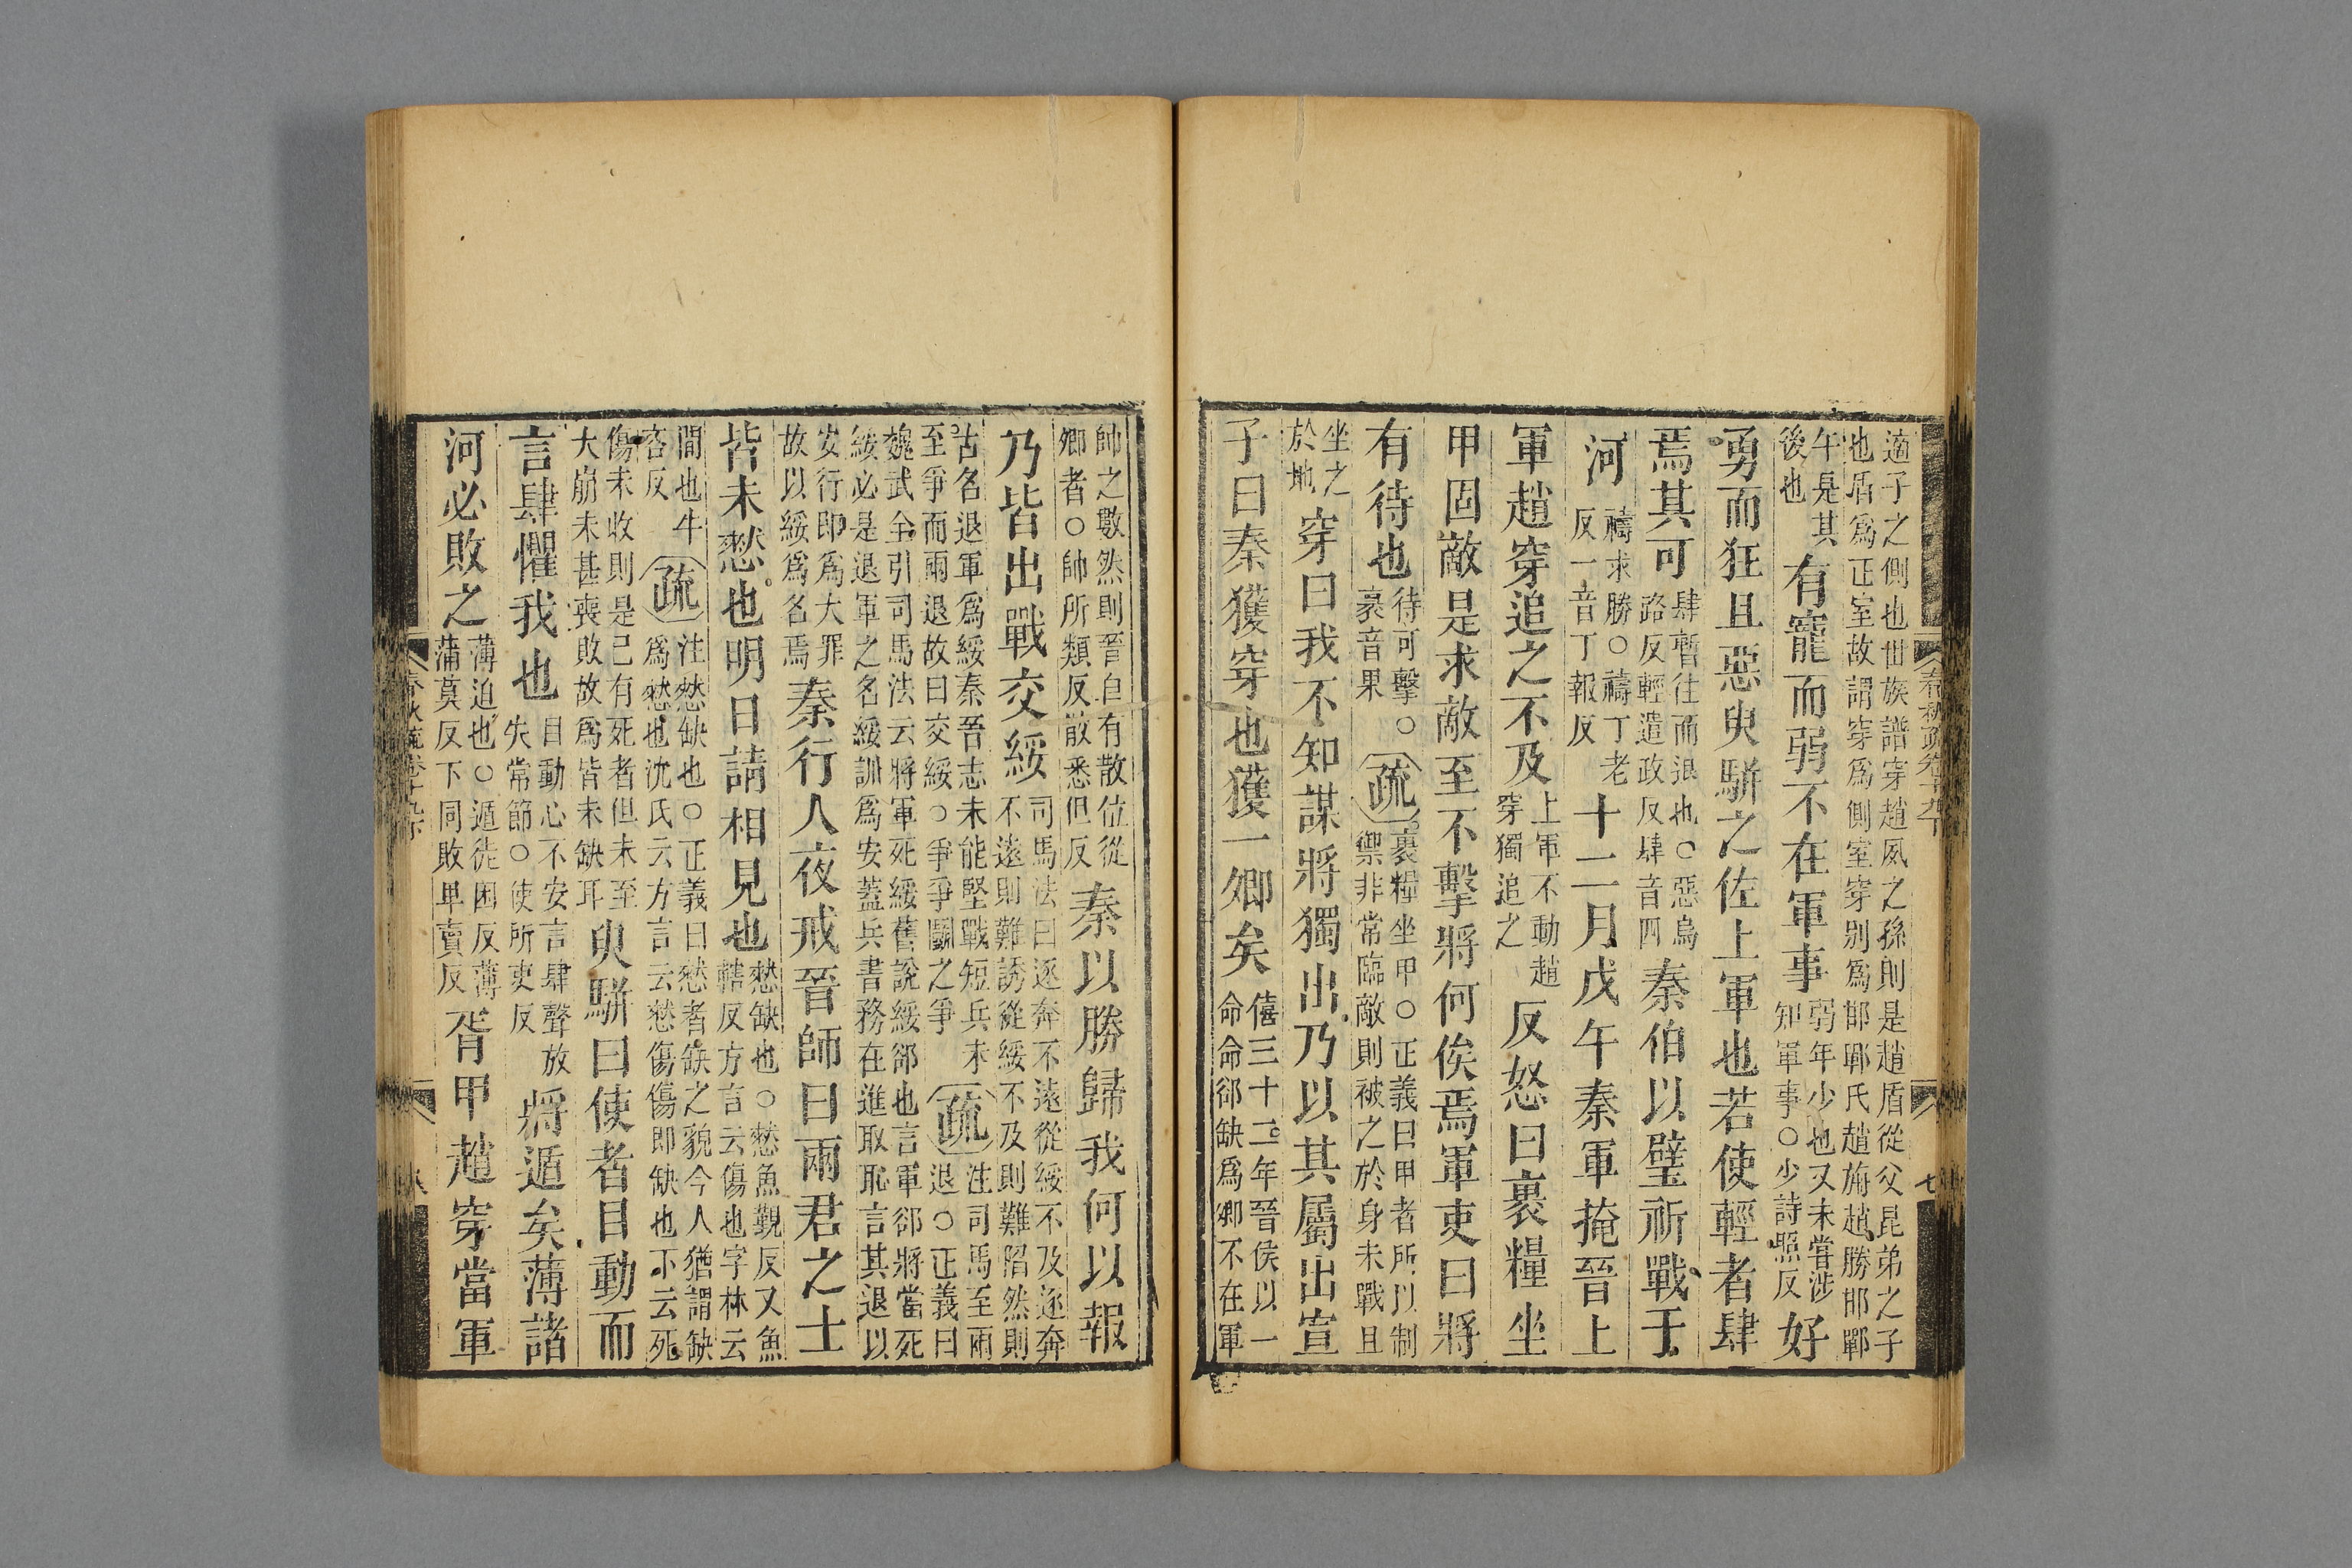 適子之側也世族譜穿趙夙之孫則是趙盾從父昆弟之子
也盾爲正室故謂穿爲側室穿别爲邯鄲氏趙旃趙勝邯鄲
午是其
後也
有寵而弱不在軍事
弱年少也又未嘗涉
知軍事○少詩照反
好
勇而狂且惡臾駢之佐上軍也若使輕者肆
焉其可
肆暫往而退也○惡烏
路反輕遣政反肆音四
秦伯以璧祈戰于
河
禱求勝○禱丁老
反一音丁報反
十二月戊午秦軍掩晉上
軍趙穿追之不及
上軍不動趙
穿獨追之
反怒曰裹糧坐
甲固敵是求敵至不擊將何俟焉軍吏曰將
有待也
待可擊○
裹音果
疏
裹糧坐甲○正義曰甲者所以制
禦非常臨敵則被之於身未戰且
坐之
於地
穿曰我不知謀將獨出乃以其屬出宣
子曰秦獲穿也獲一卿矣
僖三十三年晉侯以一
命命郤缺爲卿不在軍
帥之數然則晉自有散位從
卿者○帥所類反散悉但反
秦以勝歸我何以報
乃皆出戰交綏
司馬法曰逐奔不遠從綏不及逐奔
不遠則難誘從綏不及則難陷然則
古名退軍爲綏秦晉志未能堅戰短兵未
至爭而兩退故曰交綏○爭爭鬭之爭
疏
注司馬至兩
退○正義曰
魏武令引司馬法云將軍死綏舊說綏郤也言軍郤將當死
綏必是退軍之名綏訓爲安蓋兵書務在進取恥言其退以
安行即爲大罪
故以綏爲名焉
秦行人夜戒晉師曰兩君之士
皆未憖也明日請相見也
憖缺也○憖魚覲反又魚
轄反方言云傷也字林云
間也牛
吝反
疏
注憖缺也○正義曰憖者缺之貌今人猶謂缺
爲憖也沈氏云方言云憖傷傷即缺也下云死
傷未收則是已有死者但未至
大崩未甚喪敗故爲皆未缺耳
臾駢曰使者目動而
言肆懼我也
目動心不安言肆聲放
失常節○使所吏反
將遁矣薄諸
河必敗之
薄迫也○遁徒困反薄
蒲莫反下同敗卑賣反
胥甲趙穿當軍
春秋疏卷十九下
七